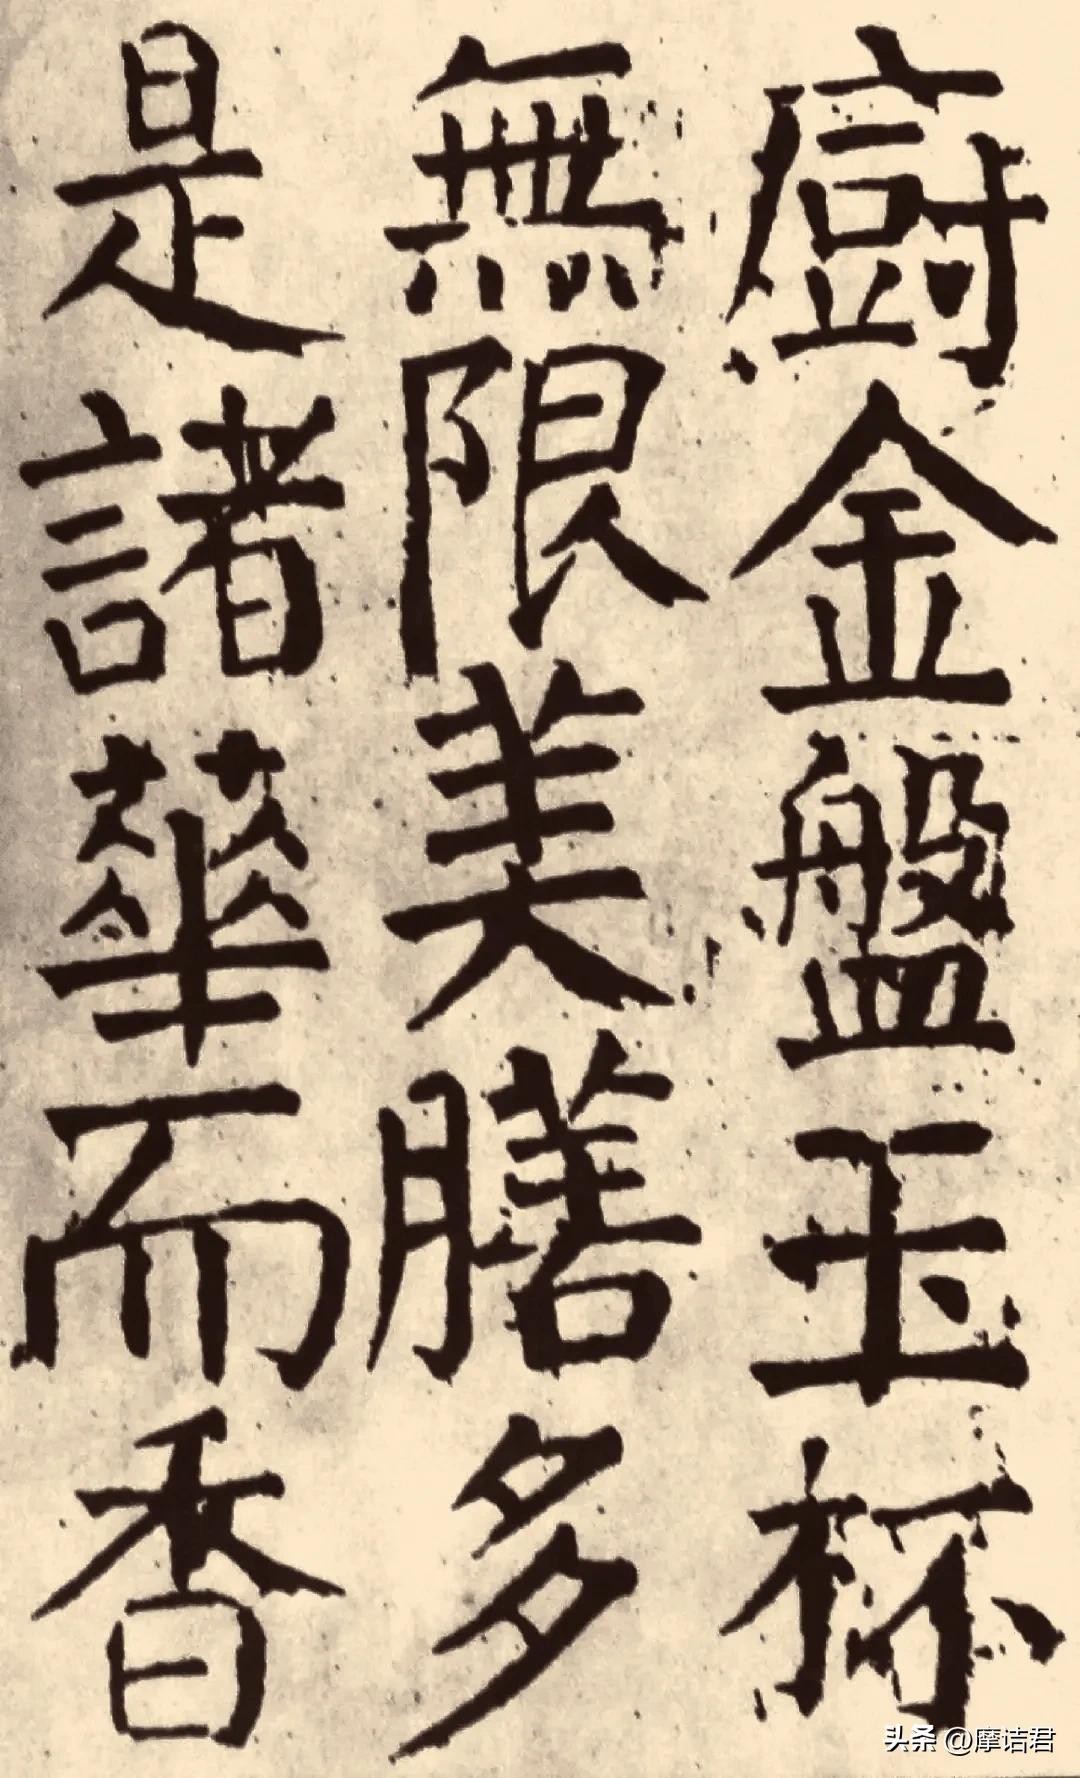 廚金盤玉杯
無限美膳多
是諸華而香
头条 @摩诘君